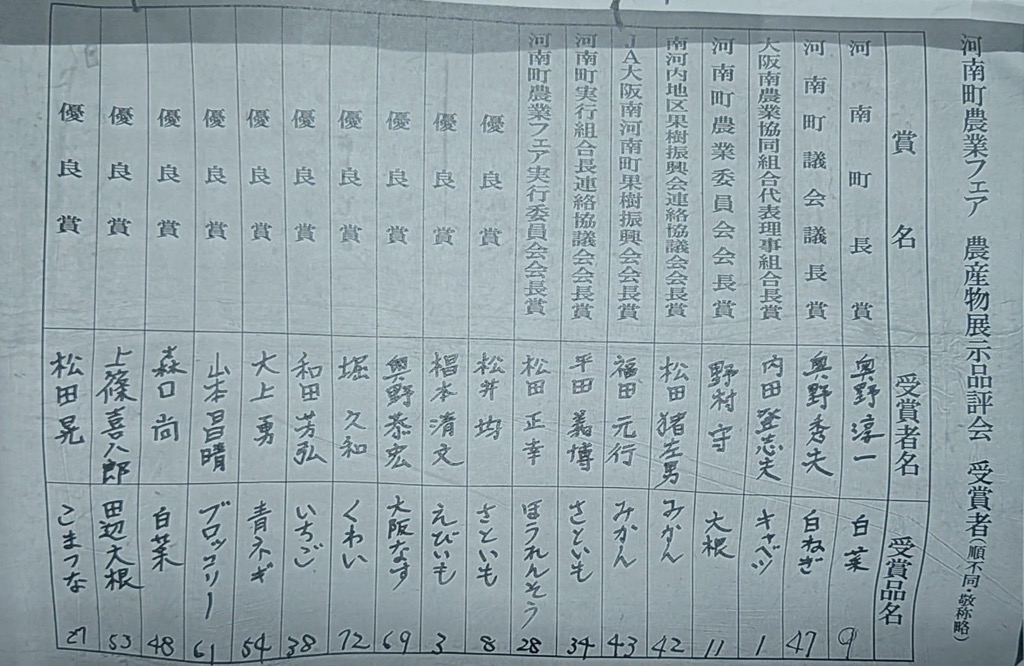 河南町農業フェア　農産物展示品評会　受賞者（順不同・敬称略）
賞名　受賞者名　受賞品名
河南町長賞　奥野淳一　白菜　9
河南町議会議長賞　奥野秀夫　白ねぎ　47
大阪南農業協同組合代表理事組合長賞　内田登志夫　キャベツ　1
河南町農業委員会会長賞　野村守　大根　11
南河内地区果樹振興会連絡協議会会長賞　松田猪左男　みかん　42
JA大阪南河南町果樹振興会会長賞　福田元行　みかん　43
河南町実行組合長連絡協議会会長賞　平田義博　さといも　34
河南町農業フェア実行委員会会長賞　松田正幸　ほうれんそう　28
優良賞　松井均　さといも　8
優良賞　椙本清文　えびいも　3
優良賞　奥野恭宏　大阪なす　69
優良賞　堀久和　くわい　72
優良賞　和田芳弘　いちご　38
優良賞　大上勇　青ネギ　54
優良賞　山本昌晴　ブロッコリー　61
優良賞　森口尚　白菜　48
優良賞　上篠喜八郎　田辺大根　53
優良賞　松田晃　こまつな　27